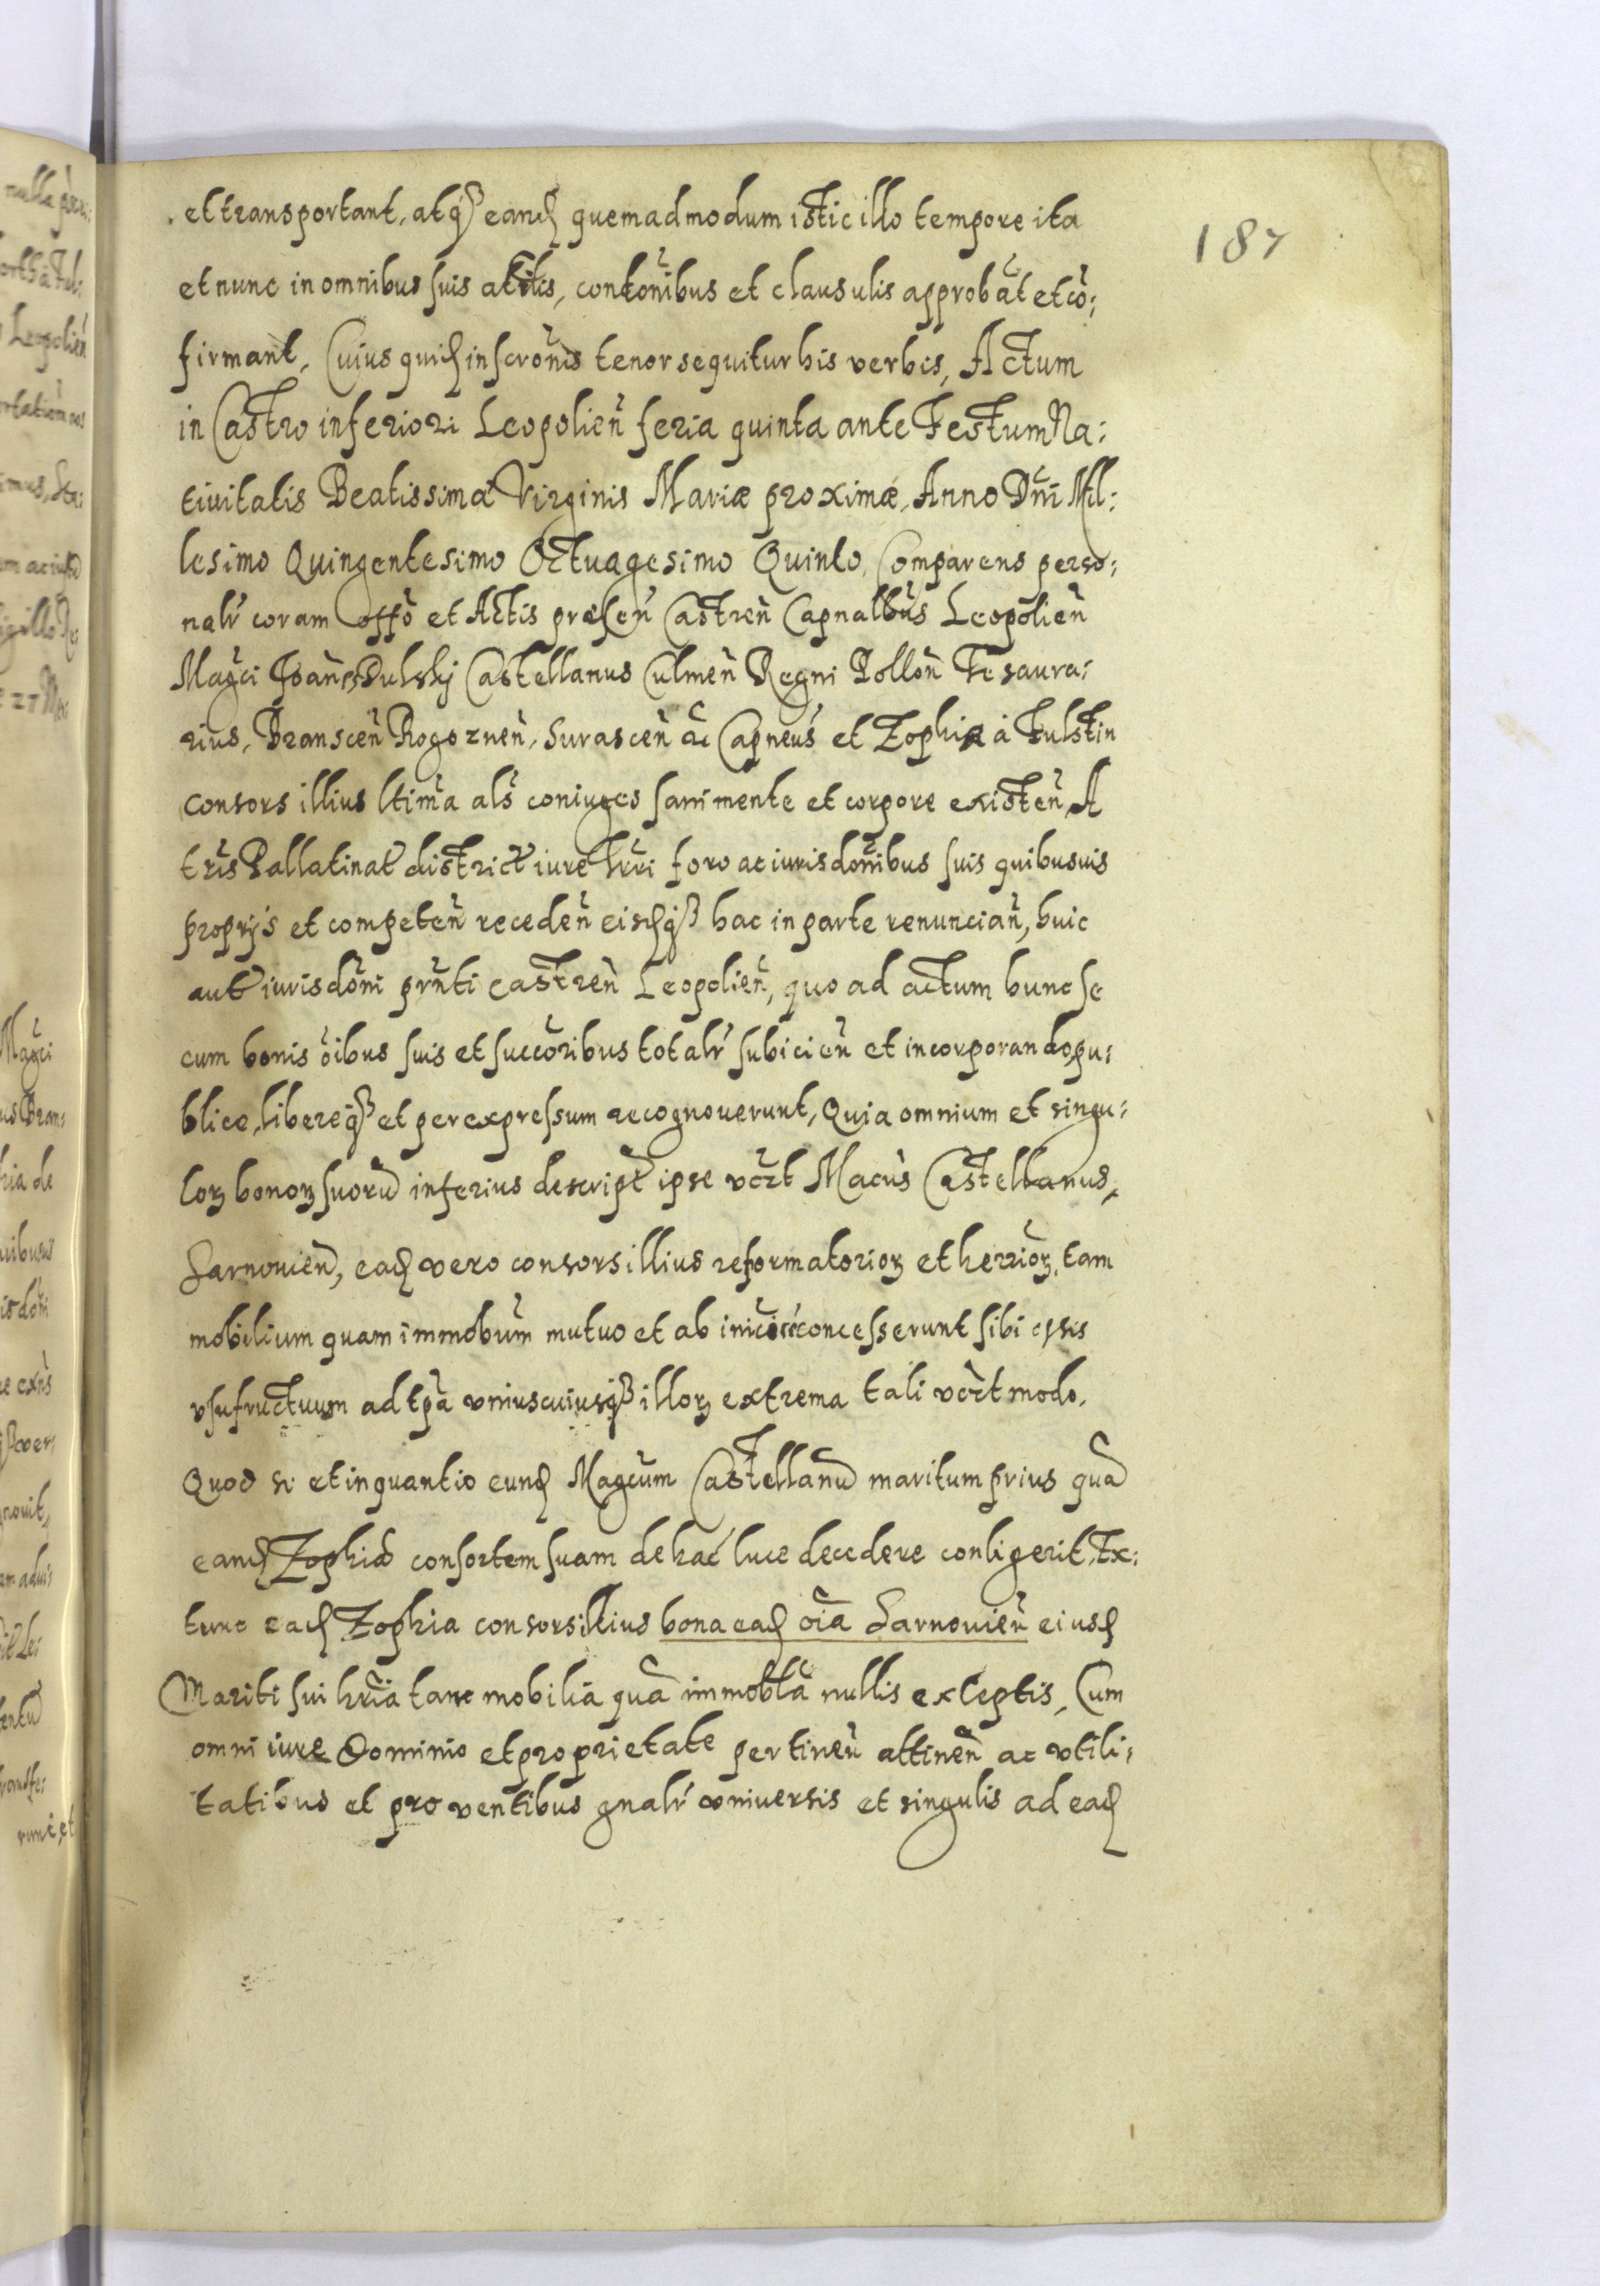 187
et transportant, atq₃ eand quemadmodum istic illo tempore ita
et nunc in omnibus suis contonibus et clausulis approbat et co:
firmant, Cuius quid inscronis tenor sequitur his verbis, Actum
in Castro inferiori Leopolien feria quinta ante Festum Na:
tivitatis Beatissimæ Virginis Mariæ proximæ, Anno Dni Mil:
lesimo Quingentesimo Octuagesimo Quinto, Comparens perso:
nalr coram offo et Actis præsen Castren Capnalbus Leopolien
Magci Joan Dulskj Castellanus Culmen Regni Pollon Tesaura:
rius, Branscen Rogoznen, Surascen ac Capneus et Zophia à Fulstin
consors illius ltima als coniuges sani mente et corpore existen A
tris Pallatinat district iure trri foro ac iurisdonibus suis quibusvis
proprijs et competen receden eisdq₃ hac in parte renuncian, huic
aut iurisdoni prnti castren Leopolien, quo ad actum hunc se
cum bonis oibus suis et succoribus totalr subicien et incorporando, pu:
blice, libereq₃ et per expressum recognouerunt, Quia omnium et singu:
lorꝫ bonorꝫ suoru inferius descript ipse vczt Macus Castellanus,
Sarnouien, ead vero consors illius reformatoriorꝫ et herriorꝫ, tam
mobilium quam immobum mutuo et ab concesserunt sibi ipsis
vsufructuum ad tpa vniuscuiusq₃ illorꝫ extrema tali vczt modo.
Quod si et inquantio eund Magcum Castellanu maritum prius qua
eand Zophia consortem suam de hac luce decedere contigerit, Ex:
tunc ead Zophia consors illius bona ead oia Sarnouien eiusd
Mariti sui hria tam mobilia qua immobla nullis exceptis, Cum
omni iure Dominio et proprietate pertinen attinen ac vtili:
tatibus et proventibus gnalr vniversis et singulis ad ead